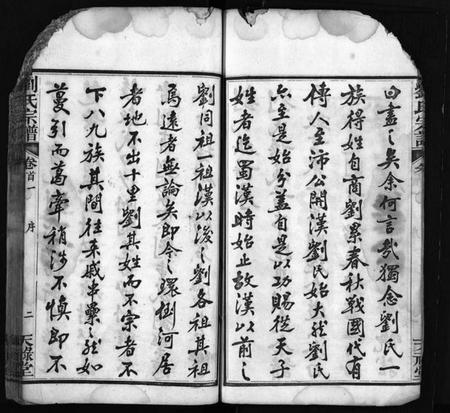 曰盡之矣余何言哉獨念劉氏一
族得姓自商劉累春秋戰國代有
傳人至沛公開漢劉氏始大然劉氏
六主是始兮蓋自是以功賜從天子
姓者迄蜀漢時始止故漢以前之
劉同祖一祖漢以後之劉各祖其祖
焉遠者無論矣即今之環樹河居
者地不出十里劉其姓而不宗者不
下八九族其間往來戚串纍纍然如
蔓引而葛牽稍涉不慎即不
劉氏宗譜
卷首一
序
二
天祿堂